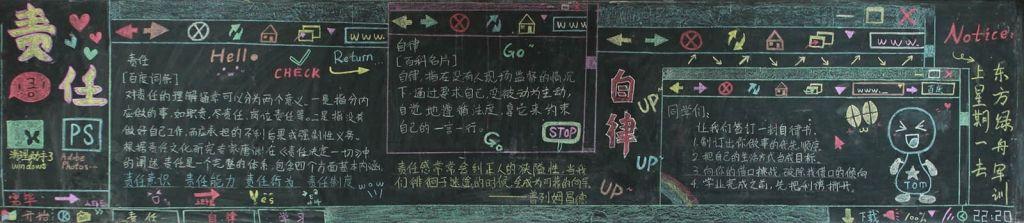 责
任
清理助手3
windows
PS
Adobe
Photos...
开始:
Hello
CHECK
Return...
www.
责任
[百度词条]
对责任的理解通常可以分为两个意义。一是指分内
应做的事,如职责、尽责任、岗位责任等。二是指没有
做好自己工作,而应承担的不利后果或强制性义务。
责任是一个完整的体系,包含四个方面基本内涵:
责任意识 责任能力 责任行为 责任制度
Yes
责任
自律
学习
www
自律
[百科名片]
自律,指在没有人现场监督的情况
下,通过要求自己,变被动为主动,
自觉地遵循法度,拿它来约束
自己的一言一行。
Go
Go
STOP
责任感常常会纠正人的狭隘性,当我
们徘徊于迷途的时候,会成为可靠的向导。
——普列姆昌德
自
律
UP
UP
UP
www.
www.
百度
同学们:
让我们签订一封自律书。
1.制订出你做事的优先顺序。
2.把自律的生活方式当成目标。
3.向你的借口挑战,破除找借口的倾向
4.学业完成之前,先把利诱挪开。
TOM
Notice:
东方绿舟军训
上星期一去
下载
100%
22:20